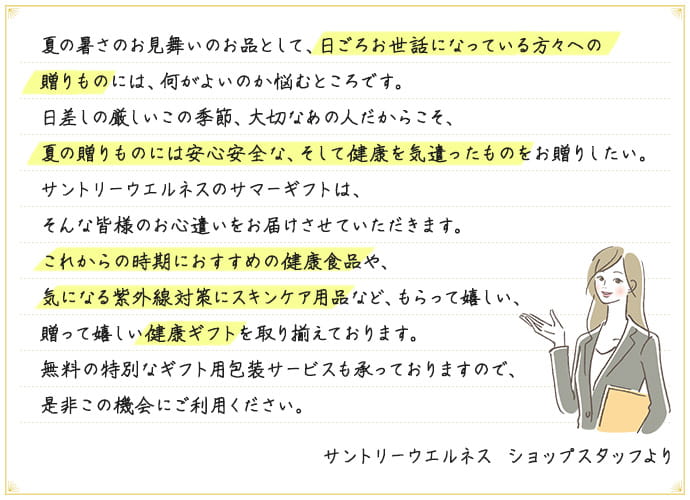 夏の暑さのお見舞いのお品として、日ごろお世話になっている方々への
贈りものには、何がよいのか悩むところです。
日差しの厳しいこの季節、大切なあの人だからこそ、
夏の贈りものには安心安全な、そして健康を気遣ったものをお贈りしたい。
サントリーウエルネスのサマーギフトは、
そんな皆様のお心遣いをお届けさせていただきます。
これからの時期におすすめの健康食品や、
気になる紫外線対策にスキンケア用品など、もらって嬉しい、
贈って嬉しい健康ギフトを取り揃えております。
無料の特別なギフト用包装サービスも承っておりますので、
是非この機会にご利用ください。
サントリーウエルネス ショップスタッフより